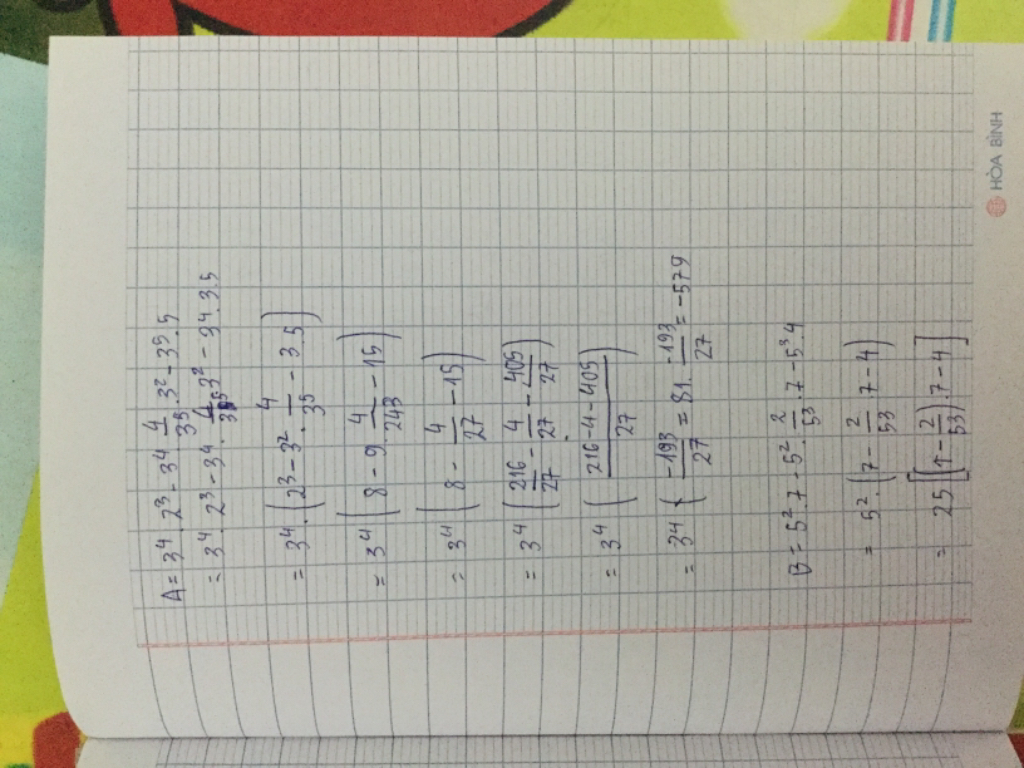 A = 3⁴.2³ - 3⁴ 4/3⁵ .3² - 3⁵.5
= 3⁴.2³ - 3⁴. 4/3⁵ .3² - 3⁴.3.5
= 3⁴.(2³ - 3². 4/3⁵ - 3.5)
= 3⁴ (8 - 9. 4/243 - 15)
= 3⁴ (8 - 4/27 - 15)
= 3⁴ (216/27 - 4/27 - 405/27)
= 3⁴ ((216 - 4 - 405)/27)
= 3⁴ (-193/27 = 81. -193/27 = -579
B = 5².7 - 5². 2/53 .7 - 5³.4
= 5².(7 - 2/53 .7 - 4)
= 25[(1 - 2/53).7 - 4]
HÒA BÌNH